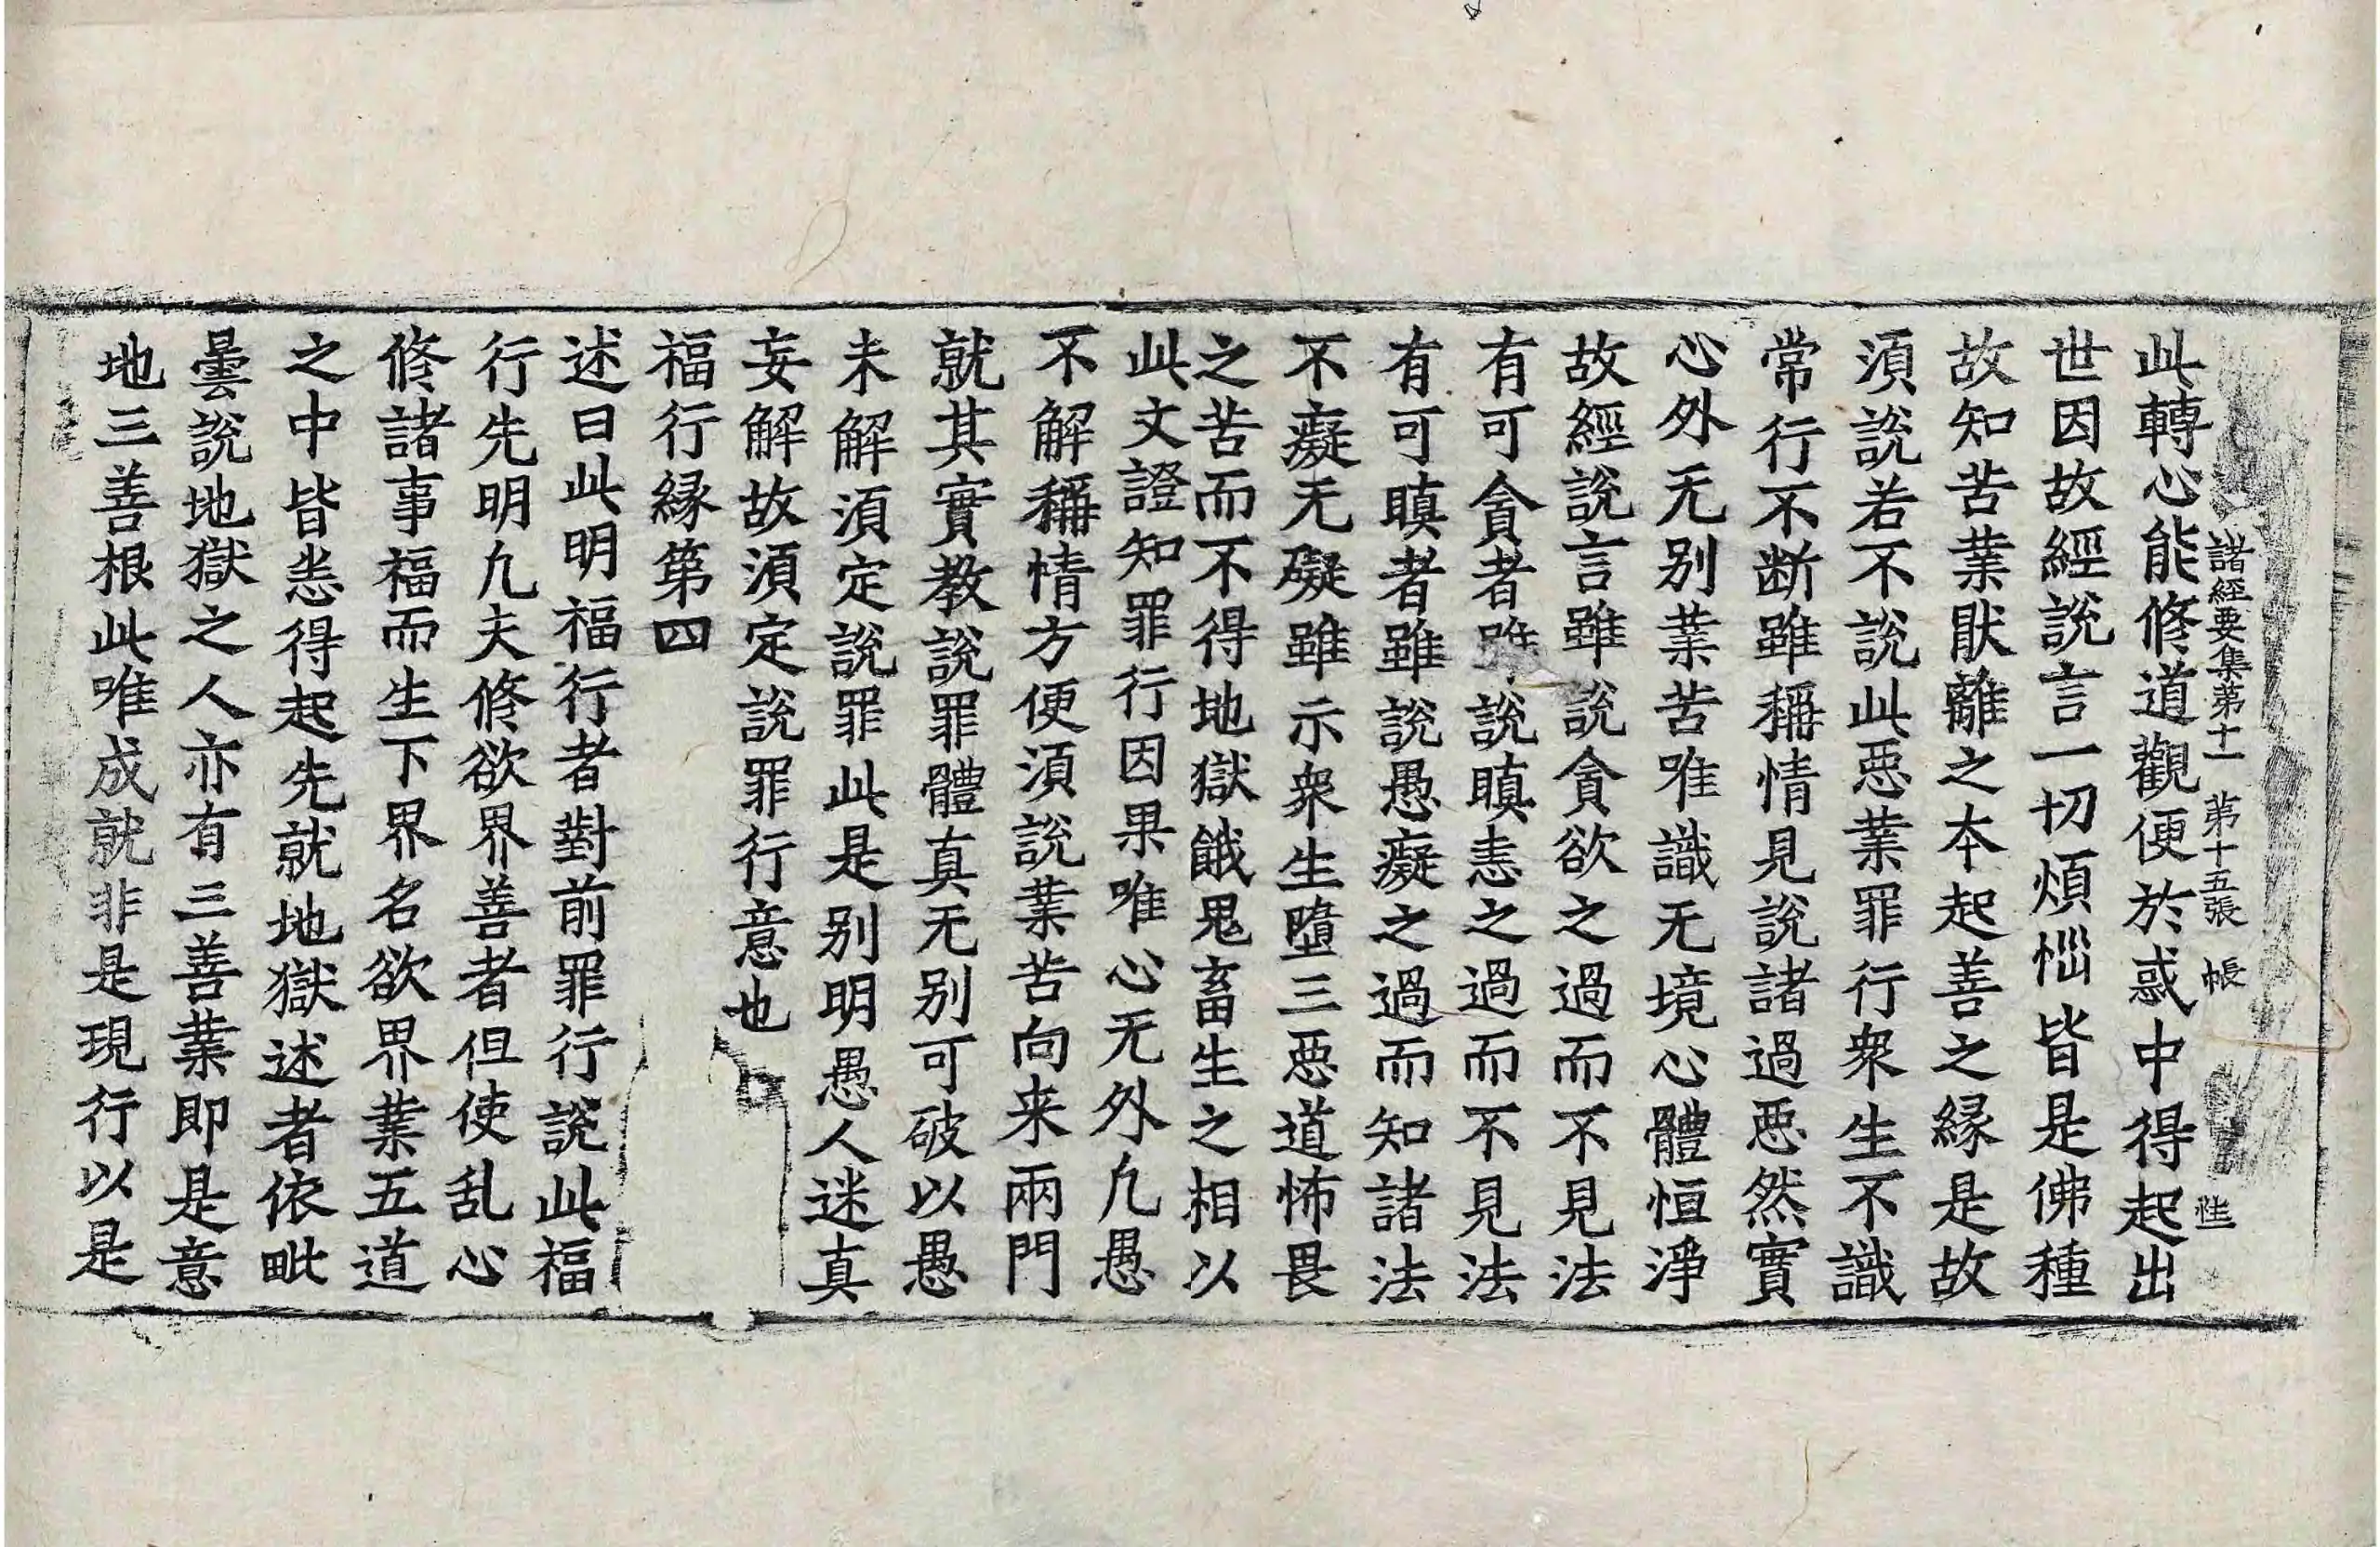 諸經要集第十一 第十五張 帳
此轉心能修道觀便於惑中得起出
世因故經說言一切煩惱皆是佛種
故知苦業猒離之本起善之縁是故
湏說若不說此惡業罪行衆生不識
常行不断雖稱情見說諸過惡然實
心外无别業苦唯識无境心體恒淨
故經說言雖說貪欲之過而不見法
有可貪者雖說瞋恚之過而不見法
有可瞋者雖說愚癡之過而知諸法
不癡无礙雖示衆生墮三惡道怖畏
之苦而不得地獄餓鬼畜生之相以
此文證知罪行因果唯心无外凡愚
不解稱情方便湏說業苦向来兩門
就其實教說罪體真无别可破以愚
未解湏定說罪此是别明愚人迷真
妄解故湏定說罪行意也
福行縁第四
述曰此明福行者對前罪行說此福
行先明凢夫修欲界善者但使乱心
修諸事福而生下界名欲界業五道
之中皆悉得起先就地獄述者依毗
曇說地獄之人亦有三善業即是意
地三善根此唯成就非是現行以是